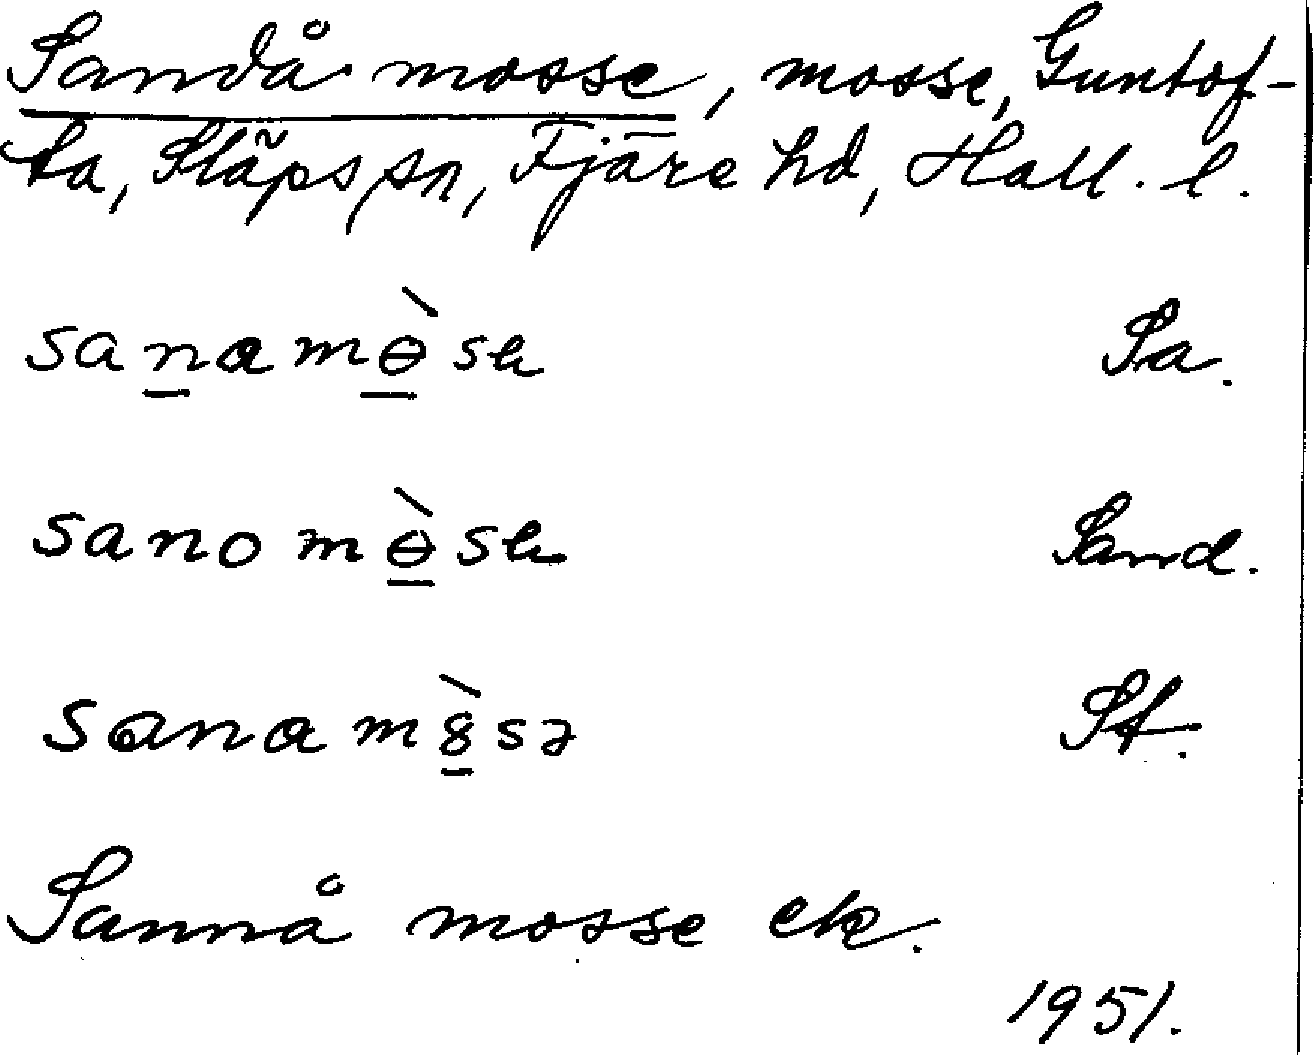 Sandå mosse, mosse, Guntof-
ta, Släps sn, Fjäre hd, Hall. l.
sanamɵ̀sɐ Sa.
sanomɵ̀sɐ Sand.
sanam8̀sə St.
Sannå mosse ek.
1951.